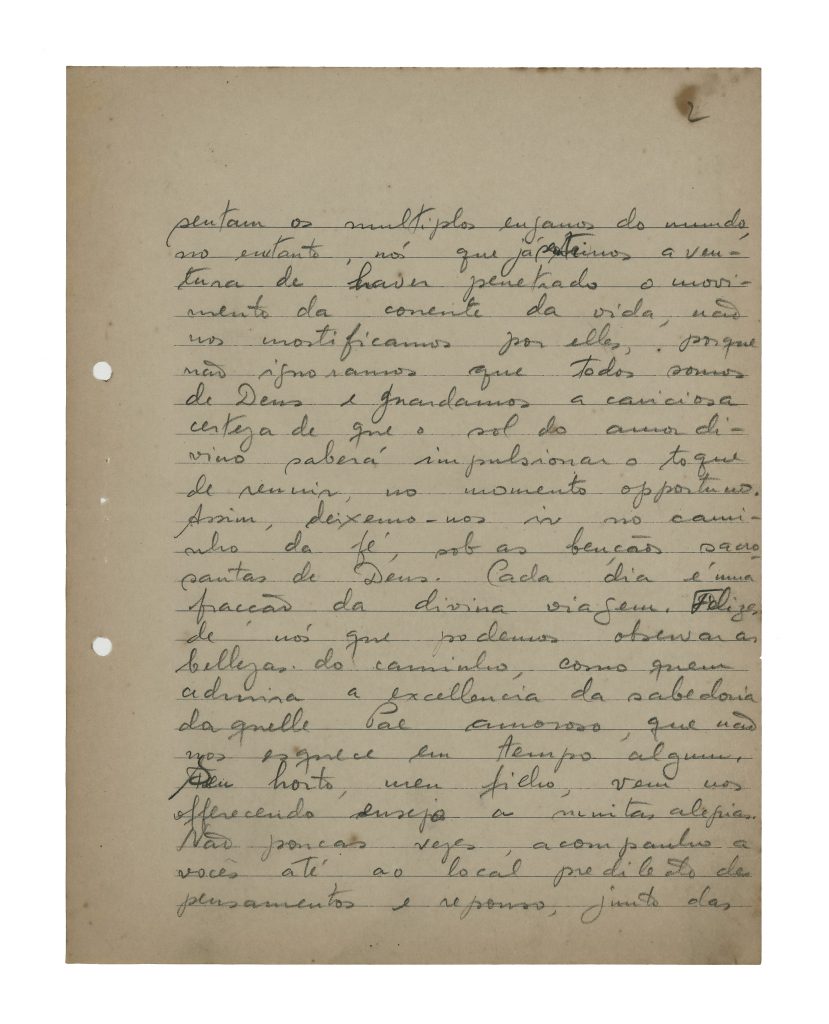 2
sentam os multiplos enganos do mundo,
no entanto, nós que já tivemos a ven-
tura de haver penetrado o movi-
mento da corrente da vida, não
nos mortificamos por elles, porque
não ignoramos que todos somos
de Deus e guardamos a cariciosa
certeza de que o sol do amor di-
vino saberá impulsionar o toque
de reunir, no momento opportuno.
Assim, deixemo-nos ir no cami-
nho da fé, sob as bençãos sacro-
santas de Deus. Cada dia é uma
fracção da divina viagem. Felizes
de nós que podemos observar as
bellezas do caminho, como quem
admira a excellencia da sabedoria
daquelle Pae amoroso, que não
nos esquece em tempo algum.
Seu horto, meu filho, vem nos
offerecendo ensejo a muitas alegrias.
Não poucas vezes, acompanho a
vocês até ao local predilecto de
pensamentos e repouso, junto das